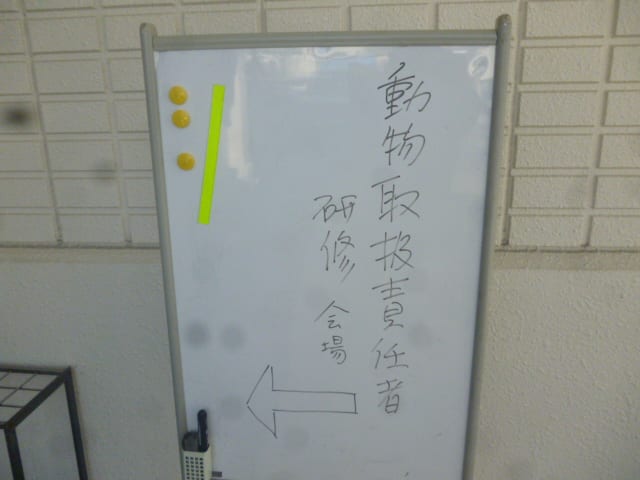 動物取扱責任者
研修 会場